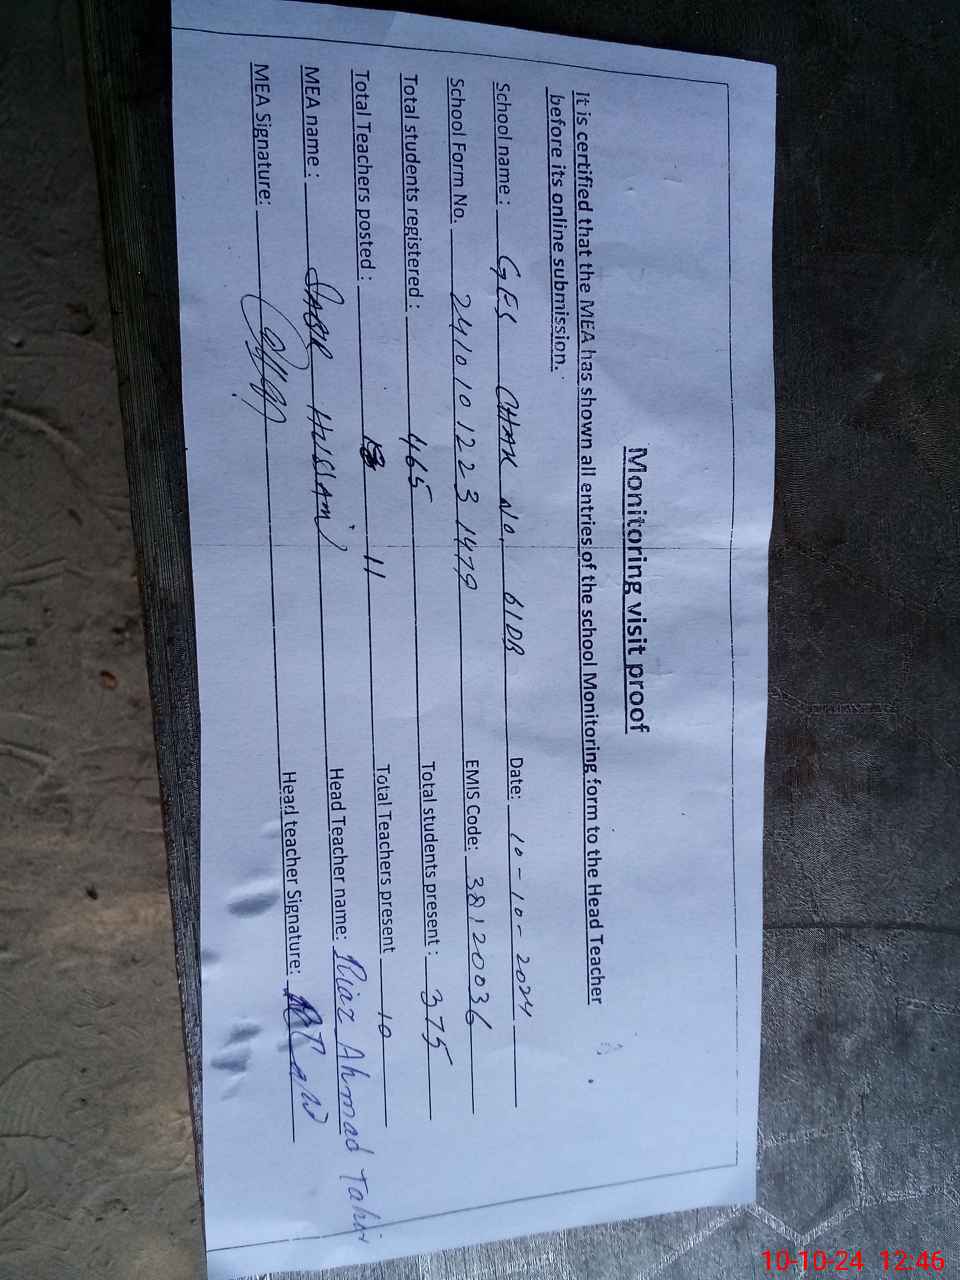 Monitoring visit proof
It is certified that the MEA has shown all entries of the school Monitoring form to the Head Teacher
before its online submission.
School name : GES CHAK No. 61DB Date: 10-10-2024
School Form No. 241010 1223 1479 EMIS Code: 38120036
Total students registered : 465 Total students present : 375
Total Teachers posted : 11 Total Teachers present 10
MEA name : SABIR HUSSAIN Head Teacher name: Riaz Ahmad Tahir
MEA Signature: Head teacher Signature:
10-10-24 12:46